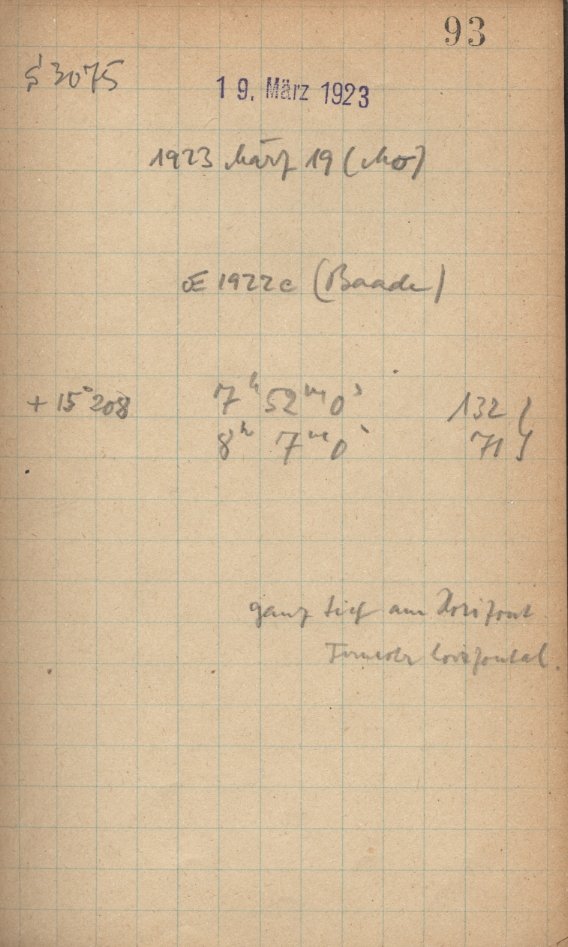 93
3075
19. März 1923
1923 März 19 (Mo)
1922c (Baade)
+15° 208 7ʰ 52ᵐ 0ˢ 132 }
8ʰ 7ᵐ 0ˢ 71 }
ganz tief am Horizont
horizontal.